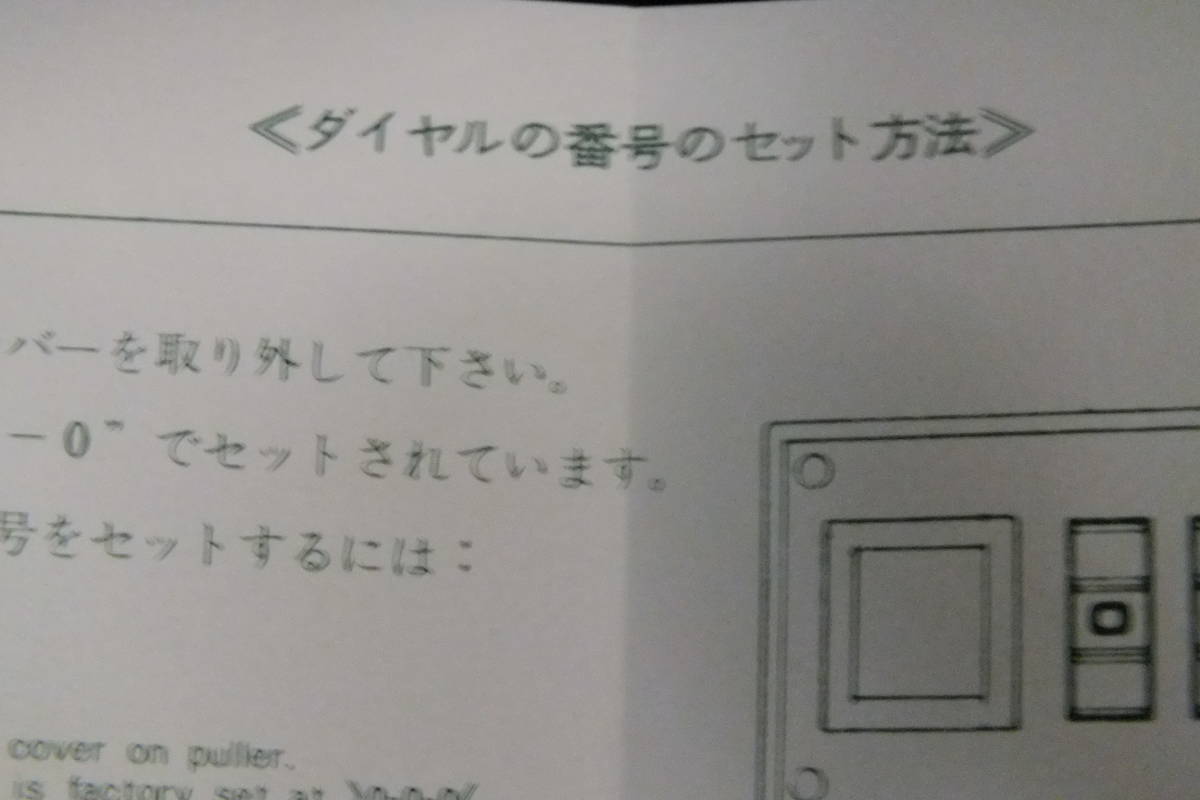 ≪ダイヤルの番号のセット方法≫
バーを取り外して下さい。
－0” でセットされています。
号をセットするには：
0
cover on puller.
is factory set at